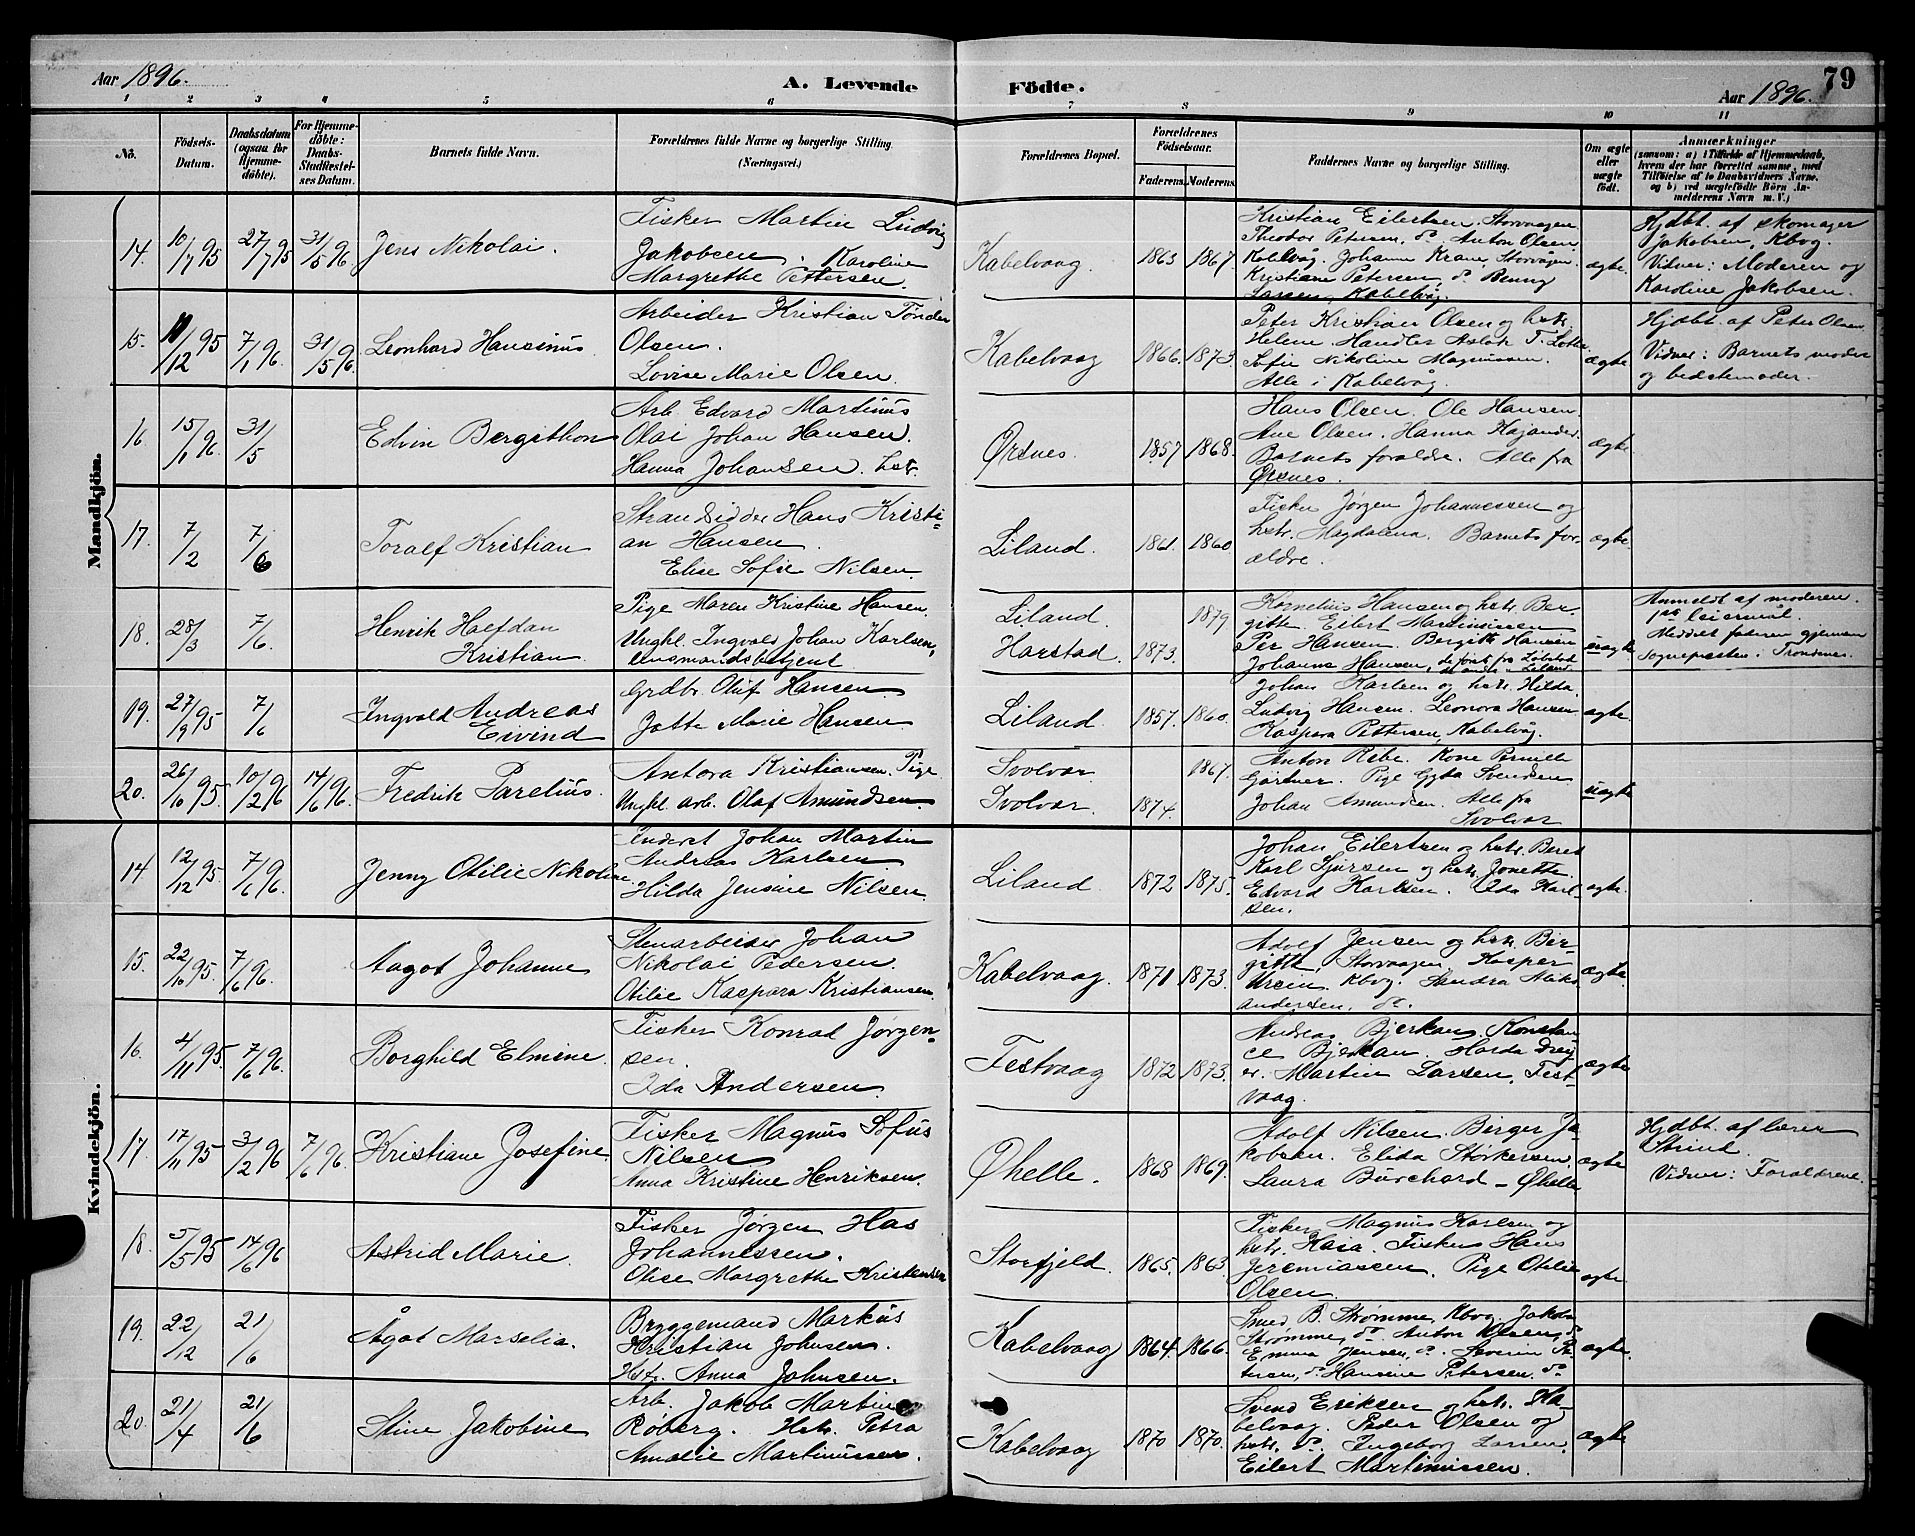 Aar 1896.
A. Levende
Födte.
79
Aar 1896.
1 2 3 4 5 6 7 8 9 10 11
No.
Födsels-
Datum.
Daabsdatum
(ogsaa for
Hjemme-
döbte).
For Hjemme-
döbte:
Daabs-
Stadfæstel-
ses Datum.
Barnets fulde Navn.
Forældrenes fulde Navne og borgerlige Stilling.
(Næringsvei.)
Forældrenes Bopæl.
Forældrenes
Födselsaar.
Faderens. Moderens.
Faddernes Navne og borgerlige Stilling.
Om ægte
eller
uægte
födt.
Anmærkninger
(saasom: a) i Tilfælde af Hjemmedaab,
hvem der har forrettet samme, med
Tilföielse af to Daabsvidners Navne,
og b) ved uægtefödte Börn An-
melderens Navn m. V.)
Mandkjön.
14. 10/7 95 27/7 95 31/5 96. Jens Nikolai.
Fisker Martin Ludvig
Jakobsen. Karoline
Margrethe Pettersen.
Kabelvaag. 1863 1867
Kristian Eilertsen. Storvaagen
Theodor Petersen, do. Anton Olsen
Kabelvag. Johanne Krane Storvågen.
Kristiane Petersen, do. Benny
Larsen, Kabelvåg.
ægte.
Hjdbt. af skomager
Jakobsen, Kbog.
Vidner: Moderen og
Karoline Jakobsen.
15. 11/12 95 7/1 96. 31/5 96. Leonhard Hansinus
Arbeider Kristian Tönder
Olsen.
Lovise Marie Olsen.
Kabelvaag 1866. 1873.
Peter Kristian Olsen og hstr.
Helene. Handler Aslak T. Lotte
Sofie Nikoline Magnussen.
Alle i Kabelvåg.
ægte
Hjdbt. af Peter Olsen
Vidner: Barnets moder
og bedstemoder.
16. 15/1 96. 31/5 Edvin Bergithon
Arb. Edvard Martinus
Olai Johan Hansen.
Hanna Johansen. hstr.
Ørsnes. 1857 1868.
Hans Olsen. Ole Hansen.
Ane Olsen. Hanna Kajander.
Barnets forældre. Alle fra
Ørsnes.
ægte
17. 7/2 7/6 Toralf Kristian
Strandsidder Hans Kristi-
an Hansen.
Elise Sofie Nilsen.
Liland. 1861. 1860.
Fisker Jørgen Johannessen og
hstr. Magdalena. Barnets for-
ældre.
ægte.
18. 28/3 7/6 Henrik Halfdan
Kristian.
Pige Maren Kristine Hansen.
Ungkl. Ingvald Johan Karlsen,
lensmandsbetjent
Liland. 1879
Harstad. 1873.
Kornelius Hansen og hstr. Ber-
gitte. Eilert Martinussen
Per Hansen. Bergitte Hansen
Johanna Hansen, de først fra
Liland.
uægte
Anmeldt af moderen.
1ste leiermål.
Meddelt faderen gjennem
Sognepresten i Trondenes.
19. 27/9 95 7/6 Ingvald Andreas
Eivind
Grdbr. Oluf Hansen
Jette Marie Hansen
Liland. 1857. 1860.
Johan Karlsen og hstr. Hilda.
Ludvig Hansen. Leonora Hansen
Kaspara Pettersen, Kabelvåg.
ægte.
20. 26/10 95. 10/2 96 14/6 96. Fredrik Parelius.
Antora Kristiansen. Pige
Ungkl. arb. Olaf Amundsen
Svolvær 1867.
Svolvær. 1874.
Anton Rebe. Kone Pernille
Gärtner. Pige Gyda Svendsen
Johan Amundsen. Alle fra
Svolvær
uægte
Kvindekjön.
14 12/12 95. 7/6 96. Jenny Otilie Nikoline
Inderst Johan Martin
Andreas Karlsen
Hilda Jensine Nilsen.
Liland 1872 1875.
Johan Eilertsen og hstr. Beret
Karl Sjursen og hstr. Jonette.
Edvard Karlsen. Ida Karl-
sen.
ægte.
15. 22/10 95. 7/6 96. Aagot Johanne
Stenarbeider Johan
Nikolai Pedersen.
Otilie Kaspara Kristiansen.
Kabelvaag. 1871 1873.
Adolf Jensen og hstr. Bir-
gitte, Storvaagen. Kasper
Ursin. Kbog. Sandra
Andersen, do.
ægte
16. 4/11 95. 7/6 96. Borghild Elmine.
Fisker Konrad Jørgen-
sen.
Ida Andersen.
Festvaag 1872 1873.
Andreas Bjerkan. Konstan-
ce Bjerkan. Harda Drey-
er. Martin Larsen, Fest-
vaag.
ægte
17. 17/11 95 3/2 96 7/6 96. Kristiane Josefine.
Fisker Magnus Sofus
Nilsen
Anna Kristine Henriksen.
Øhelle. 1868 1869.
Adolf Nilsen. Birger Ja-
kobsen. Elida Størkersen.
Laura Bürchard - Øhelle
ægte
Hjdbt. af lærer
Strind.
Vidner: Forældrene.
18. 5/5 95 14/6 96 Astrid Marie.
Fisker Jørgen Has
Johannessen.
Olise Margrethe Kristensen
Storfjeld. 1865. 1863.
Fisker Magnus Karlsen og
hstr. Kaia. Fisker Hans
Jeremiassen. Pige Otilie
Olsen.
ægte
19. 22/12 21/6 Ågot Marselia.
Bryggemand Markus
Kristian Johnsen.
Hstr. Anna Johnsen.
Kabelvaag 1864. 1866.
Smed B. Strømme, Kbog. Jakoba
Strømme, do. Anton Olsen, do
Emma Jensen, do. Severin Pe-
tersen, do. Hansine Petersen. do
ægte.
20. 21/4 21/6 Stine Jakobine
Arb. Jakob Martin
Røberg. Hstr. Petra
Amalie Martinussen.
Kabelvaag 1870 1870.
Svend Eriksen og hstr. Ka-
belvaag. Peder Olsen og
hstr. do. Ingeborg Larsen.
Eilert Martinussen.
ægte